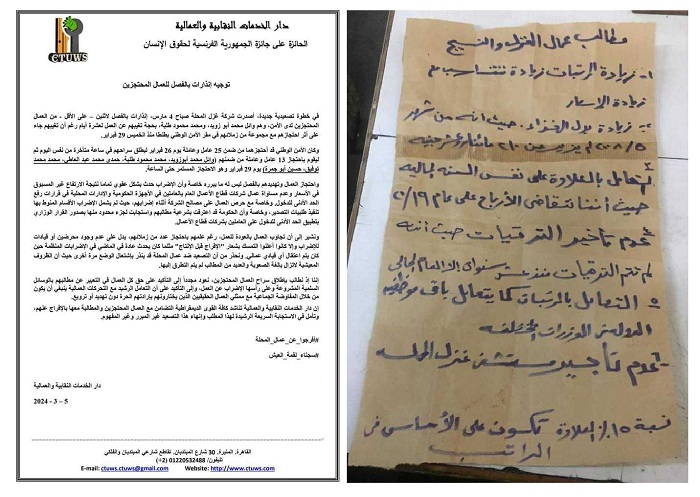 CTUWS
دار الخدمات النقابية والعمالية
الحائزة على جائزة الجمهورية الفرنسية لحقوق الإنسان
توجيه إنذارات بالفصل للعمال المحتجزين
في خطوة تصعيدية جديدة، أصدرت شركة غزل المحلة صباح 4 مارس، إنذارات بالفصل لاثنين – على الأقل - من العمال
المحتجزين لدى الأمن، وهم وائل محمد أبو زويد، ومحمد محمود طلبة، بحجة تغيبهم عن العمل لعشرة أيام رغم أن تغيبهم جاء
على أثر احتجازهم مع مجموعة من زملائهم في مقر الأمن الوطني بطنطا منذ الخميس 29 فبراير.
وكان الأمن الوطني قد أحتجزهما من ضمن 25 عامل وعاملة يوم 26 فبراير ليطلق سراحهم في ساعة متأخرة من نفس اليوم ثم
ليقوم باحتجاز 13 عامل وعاملة من ضمنهم (وائل محمد أبوزويد، محمد محمود طلبة، حمدي محمد عبد العاطي، محمد محمد
توفيق، حسين أبو جمرة) يوم 29 فبراير وهو الاحتجاز المستمر حتى الساعة.
واحتجاز العمال وتهديدهم بالفصل ليس له ما يبرره خاصة وأن الإضراب حدث بشكل عفوي تماما نتيجة الارتفاع الغير المسبوق
في الأسعار وعدم مساواة عمال شركات قطاع الأعمال العام بالعاملين في الأجهزة الحكومية والإدارات المحلية في قرارات رفع
الحد الأدنى للدخول، وخاصة مع حرص العمال على مصالح الشركة أثناء إضرابهم، حيث لم يشمل الإضراب الأقسام المنوط بها
تنفيذ طلبيات التصدير، وخاصة وأن الحكومة قد اعترفت بشرعية مطالبهم واستجابت لجزء محدود منها بصدور القرار الوزاري
بتطبيق الحد الأدنى للدخول على العاملين بشركات قطاع الأعمال.
ونشير إلى أن تجاوب العمال بالعودة للعمل، رغم علمهم باحتجاز عدد من زملائهم، يدل على عدم وجود محرضين أو قيادات
للإضراب وإلا لكانوا أعلنوا التمسك بشعار "الإفراج قبل الإنتاج" مثلما كان يحدث عادة في الماضي في الإضرابات المنظمة حين
كان يتم اعتقال أي قيادي عمالي. ونحذر من أن التصعيد ضد عمال المحلة قد ينذر بإشعال الوضع مرة أخرى حيث أن الظروف
المعيشية لاتزال بالغة الصعوبة والعديد من المطالب لم يتم التطرق إليها.
إننا إذ نطالب بإطلاق سراح العمال المحتجزين، نعود مجدداً إلى التأكيد على حق كل العمال في التعبير عن مطالبهم بالوسائل
السلمية المشروعة وعلى رأسها الإضراب عن العمل، وإلى التأكيد على أن التعامل الرشيد مع التحركات العمالية ينبغي أن يكون
من خلال المفاوضة الجماعية مع ممثلي العمال الحقيقيين الذين يختارونهم بإرادتهم الحرة دون تهديد أو ترويع.
إن دار الخدمات النقابية والعمالية تناشد كافة القوى الديمقراطية التضامن مع العمال المحتجزين والمطالبة معها بالإفراج عنهم،
وتأمل في الاستجابة السريعة الرشيدة لهذا المطلب وإنهاء هذا التصعيد غير المبرر وغير المفهوم.
#أفرجوا_عن_عمال_المحلة
#سجناء_لقمة_العيش
دار الخدمات النقابية والعمالية
5 – 3 - 2024
القاهرة، المنيرة، 30 شارع المبتديان، تقاطع شارعي المبتديان والفلكي
تليفون/ 01220532488 (+2)
E-mail: ctuws.ctuws@gmail.com Website: http://www.ctuws.com
مطالب عمال الغزل والنسيج
١- زيادة المرتبات زيادة تتناسب مع
زيادة الاسعار
٢- زيادة بدل الغذاء حيث انه من شهر
٢٠٠٨/٥ لم يزد عن ٢١٠ مائتان وعشر جنيه
٣- التعامل بالعلاوة على نفس السنه الماليه
حيث أننا نتقاضى الأرباح على عام
٤- عدم تأخير الترقيات حيث أنه
لم تتم الترقيات منذ عشر سنوات الا العام الحالى
٥- التعامل بالمرتبات كما يتعامل باقى موظفين
الدوله فى الوزارات المختلفه
٦- عدم تأجير مستشفى غزل المحله
نسبة ١٥٪ العلاوة تكون على الأساسى فى
الراتب